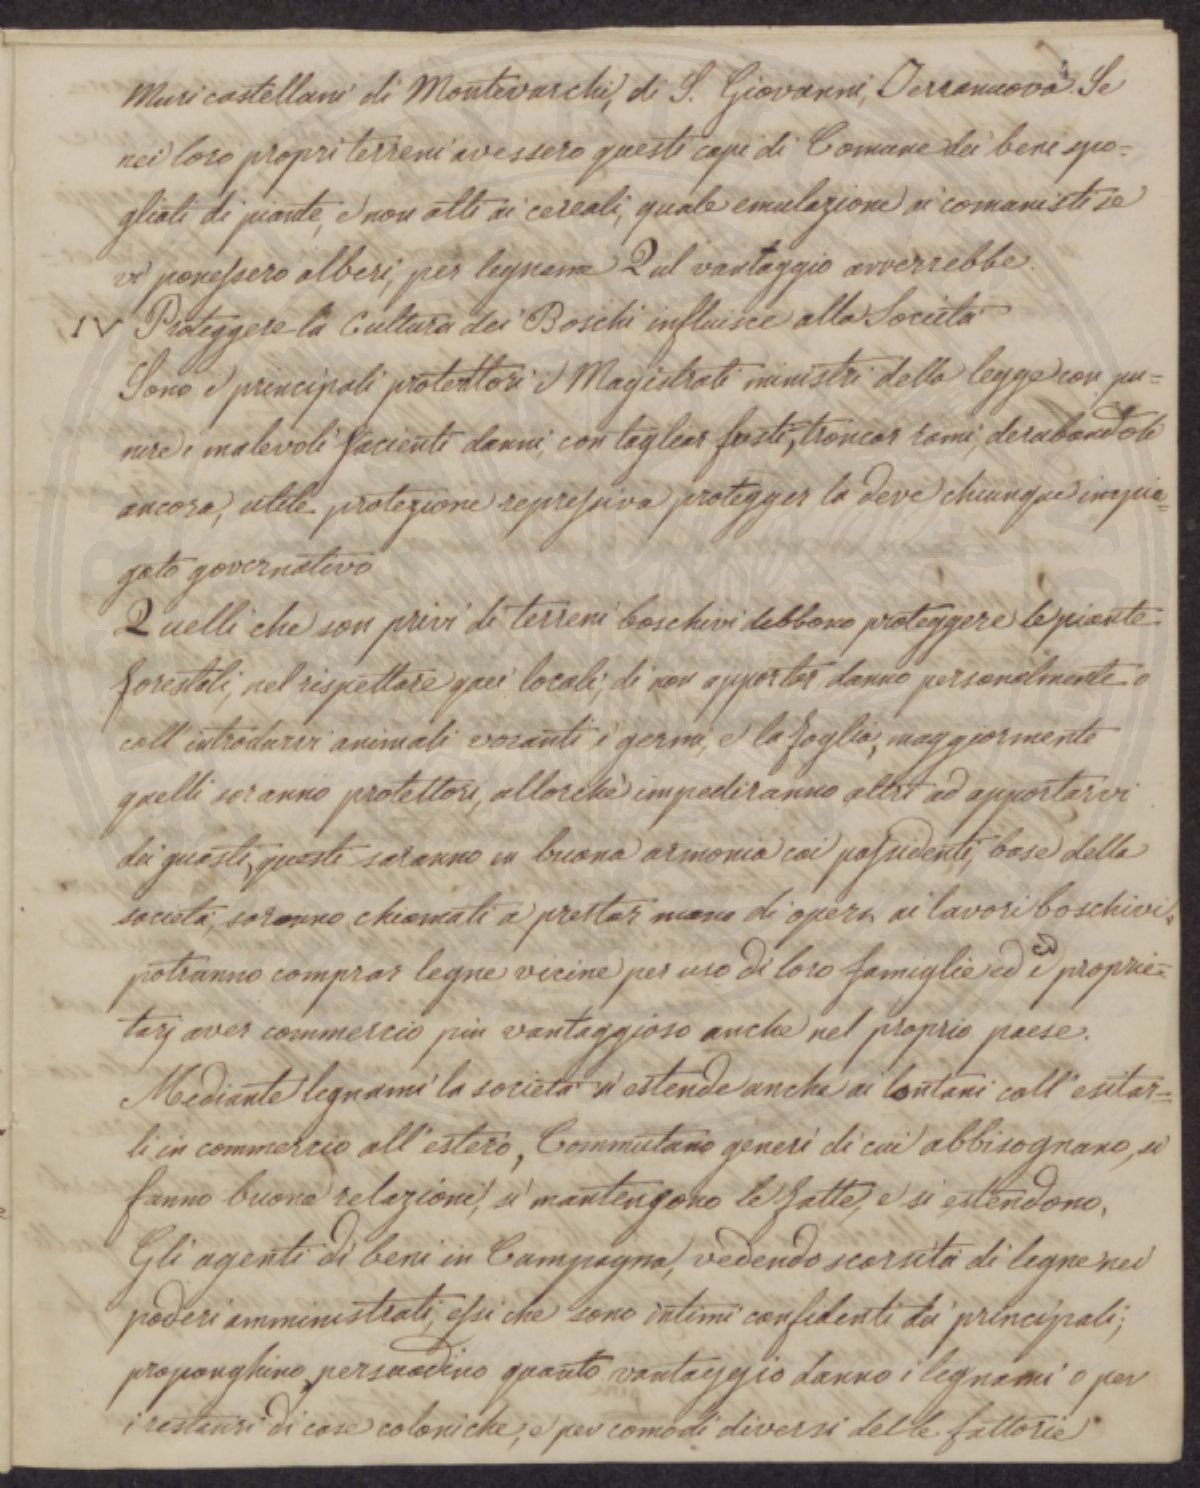 Muricastellani di Montevarchi, di S. Giovanni, Terranuova. Se
nei loro propri terreni avessero questi capi di Comune dei beni spo=
gliati di piante, e non atti ai cereali, quale emulazione ai comunisti se
vi ponessero alberi, per legname Qual vantaggio avverrebbe.
IV Proteggere la Cultura dei Boschi influisce alla Società
Sono i principali protettori i Magistrati ministri della legge con pu=
nire i malevoli facienti danni, con tagliar fusti, troncar rami, derubandoli
ancora, utile protezione repressiva protegger la deve chiunque impie=
gato governativo
Quelli che son privi di terreni boschivi debbono proteggere le piante
forestali, nel rispettare quei locali, di non apportar danno personalmente o
coll'introdurvi animali voranti i germi, e la foglia, maggiormente
quelli saranno protettori, allorchè impediranno altri ad apportarvi
dei guasti, questi saranno in buona armonia coi possidenti, base della
società, saranno chiamati a prestar mano di opera ai lavori boschivi,
potranno comprar legne vicine per uso di loro famiglie ed i proprie=
tarj aver commercio piu vantaggioso anche nel proprio paese.
Mediante legnami la società si estende anche ai lontani coll'esitar=
li in commercio all'estero, Commutano generi di cui abbisognano, si
fanno buone relazioni, si mantengono le fatte, e si estendono.
Gli agenti di beni in Campagna, vedendo scarsità di legne nei
poderi amministrati, essi che sono intimi confidenti dei principali;
proponghino, persuadino quanto vantaggio danno i legnami o per
i restauri di case coloniche, e per comodi diversi delle fattorie